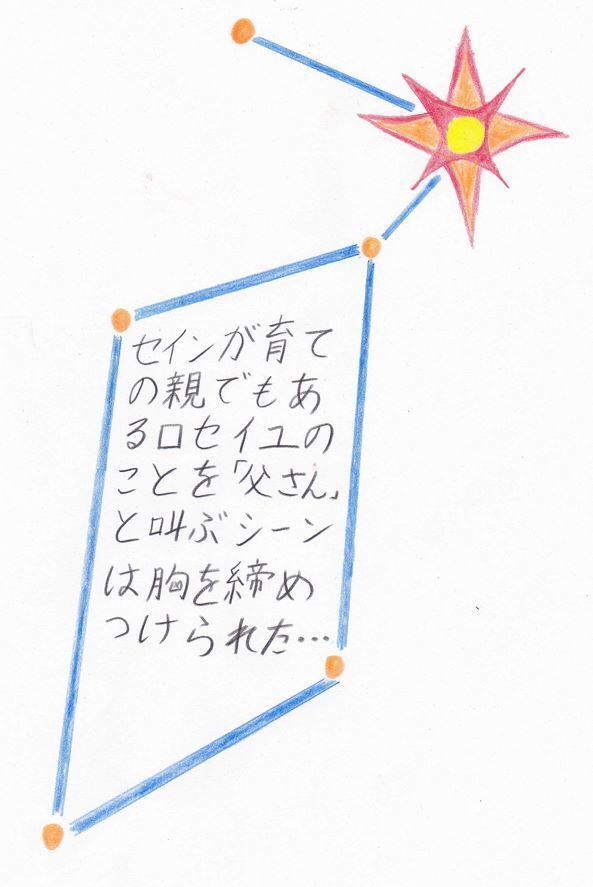 セインが育て
の親でもあ
るロセイユの
ことを「父さん」
と叫ぶシーン
は胸を締め
つけられた…